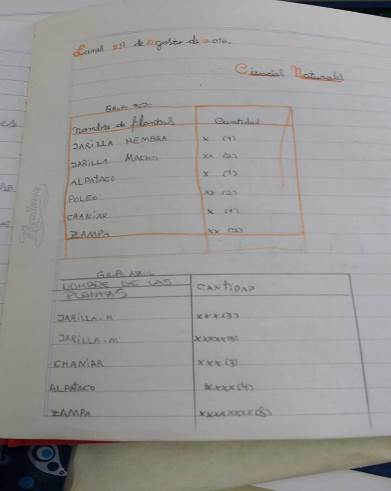 Lunes 29 de agosto de 2016.
Ciencias Naturales
GRUPO
Nombre de plantas Cantidad
JARILLA HEMBRA X (1)
JARILLA MACHO XX (2)
ALPATACO X (1)
POLEO XX (2)
CHAÑAR X (1)
ZAMPA XX (2)
GRUPO AZUL
NOMBRE DE LAS PLANTAS CANTIDAD
JARILLA.H XXX(3)
JARILLA.M
CHAÑAR XXX(3)
ALPATACO XXXX(4)
ZAMPA XXXXXXXX(8)